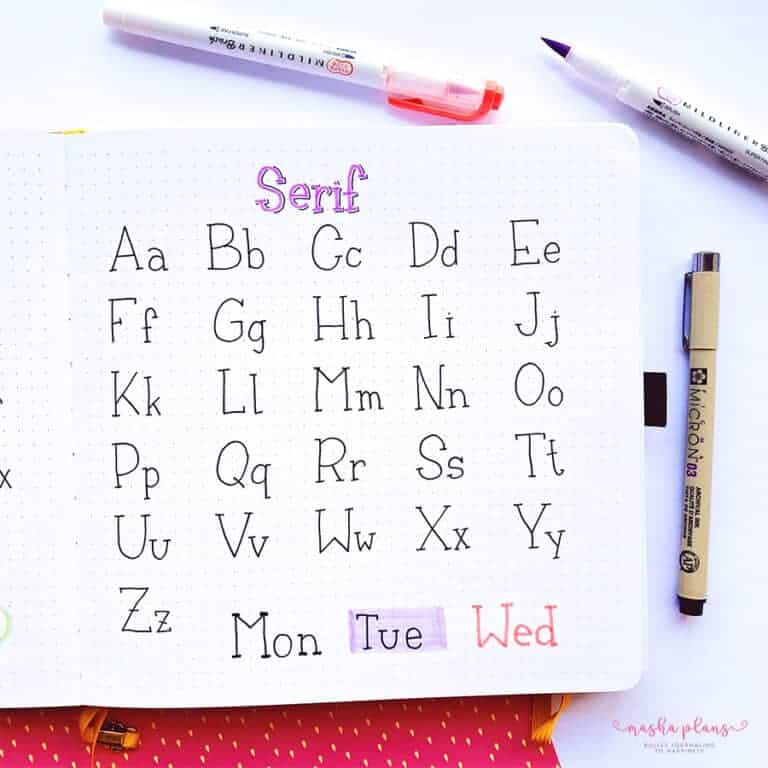 MILDLINER Brush
MILDLINER
Serif
Aa Bb Cc Dd Ee
Ff Gg Hh Ii Jj
Kk Ll Mm Nn Oo
Pp Qq Rr Ss Tt
Uu Vv Ww Xx Yy
Zz
Mon Tue Wed
x
MICRON 03
ARCHIVAL INK
masha plans
BULLET JOURNALING
TO HAPPINESS